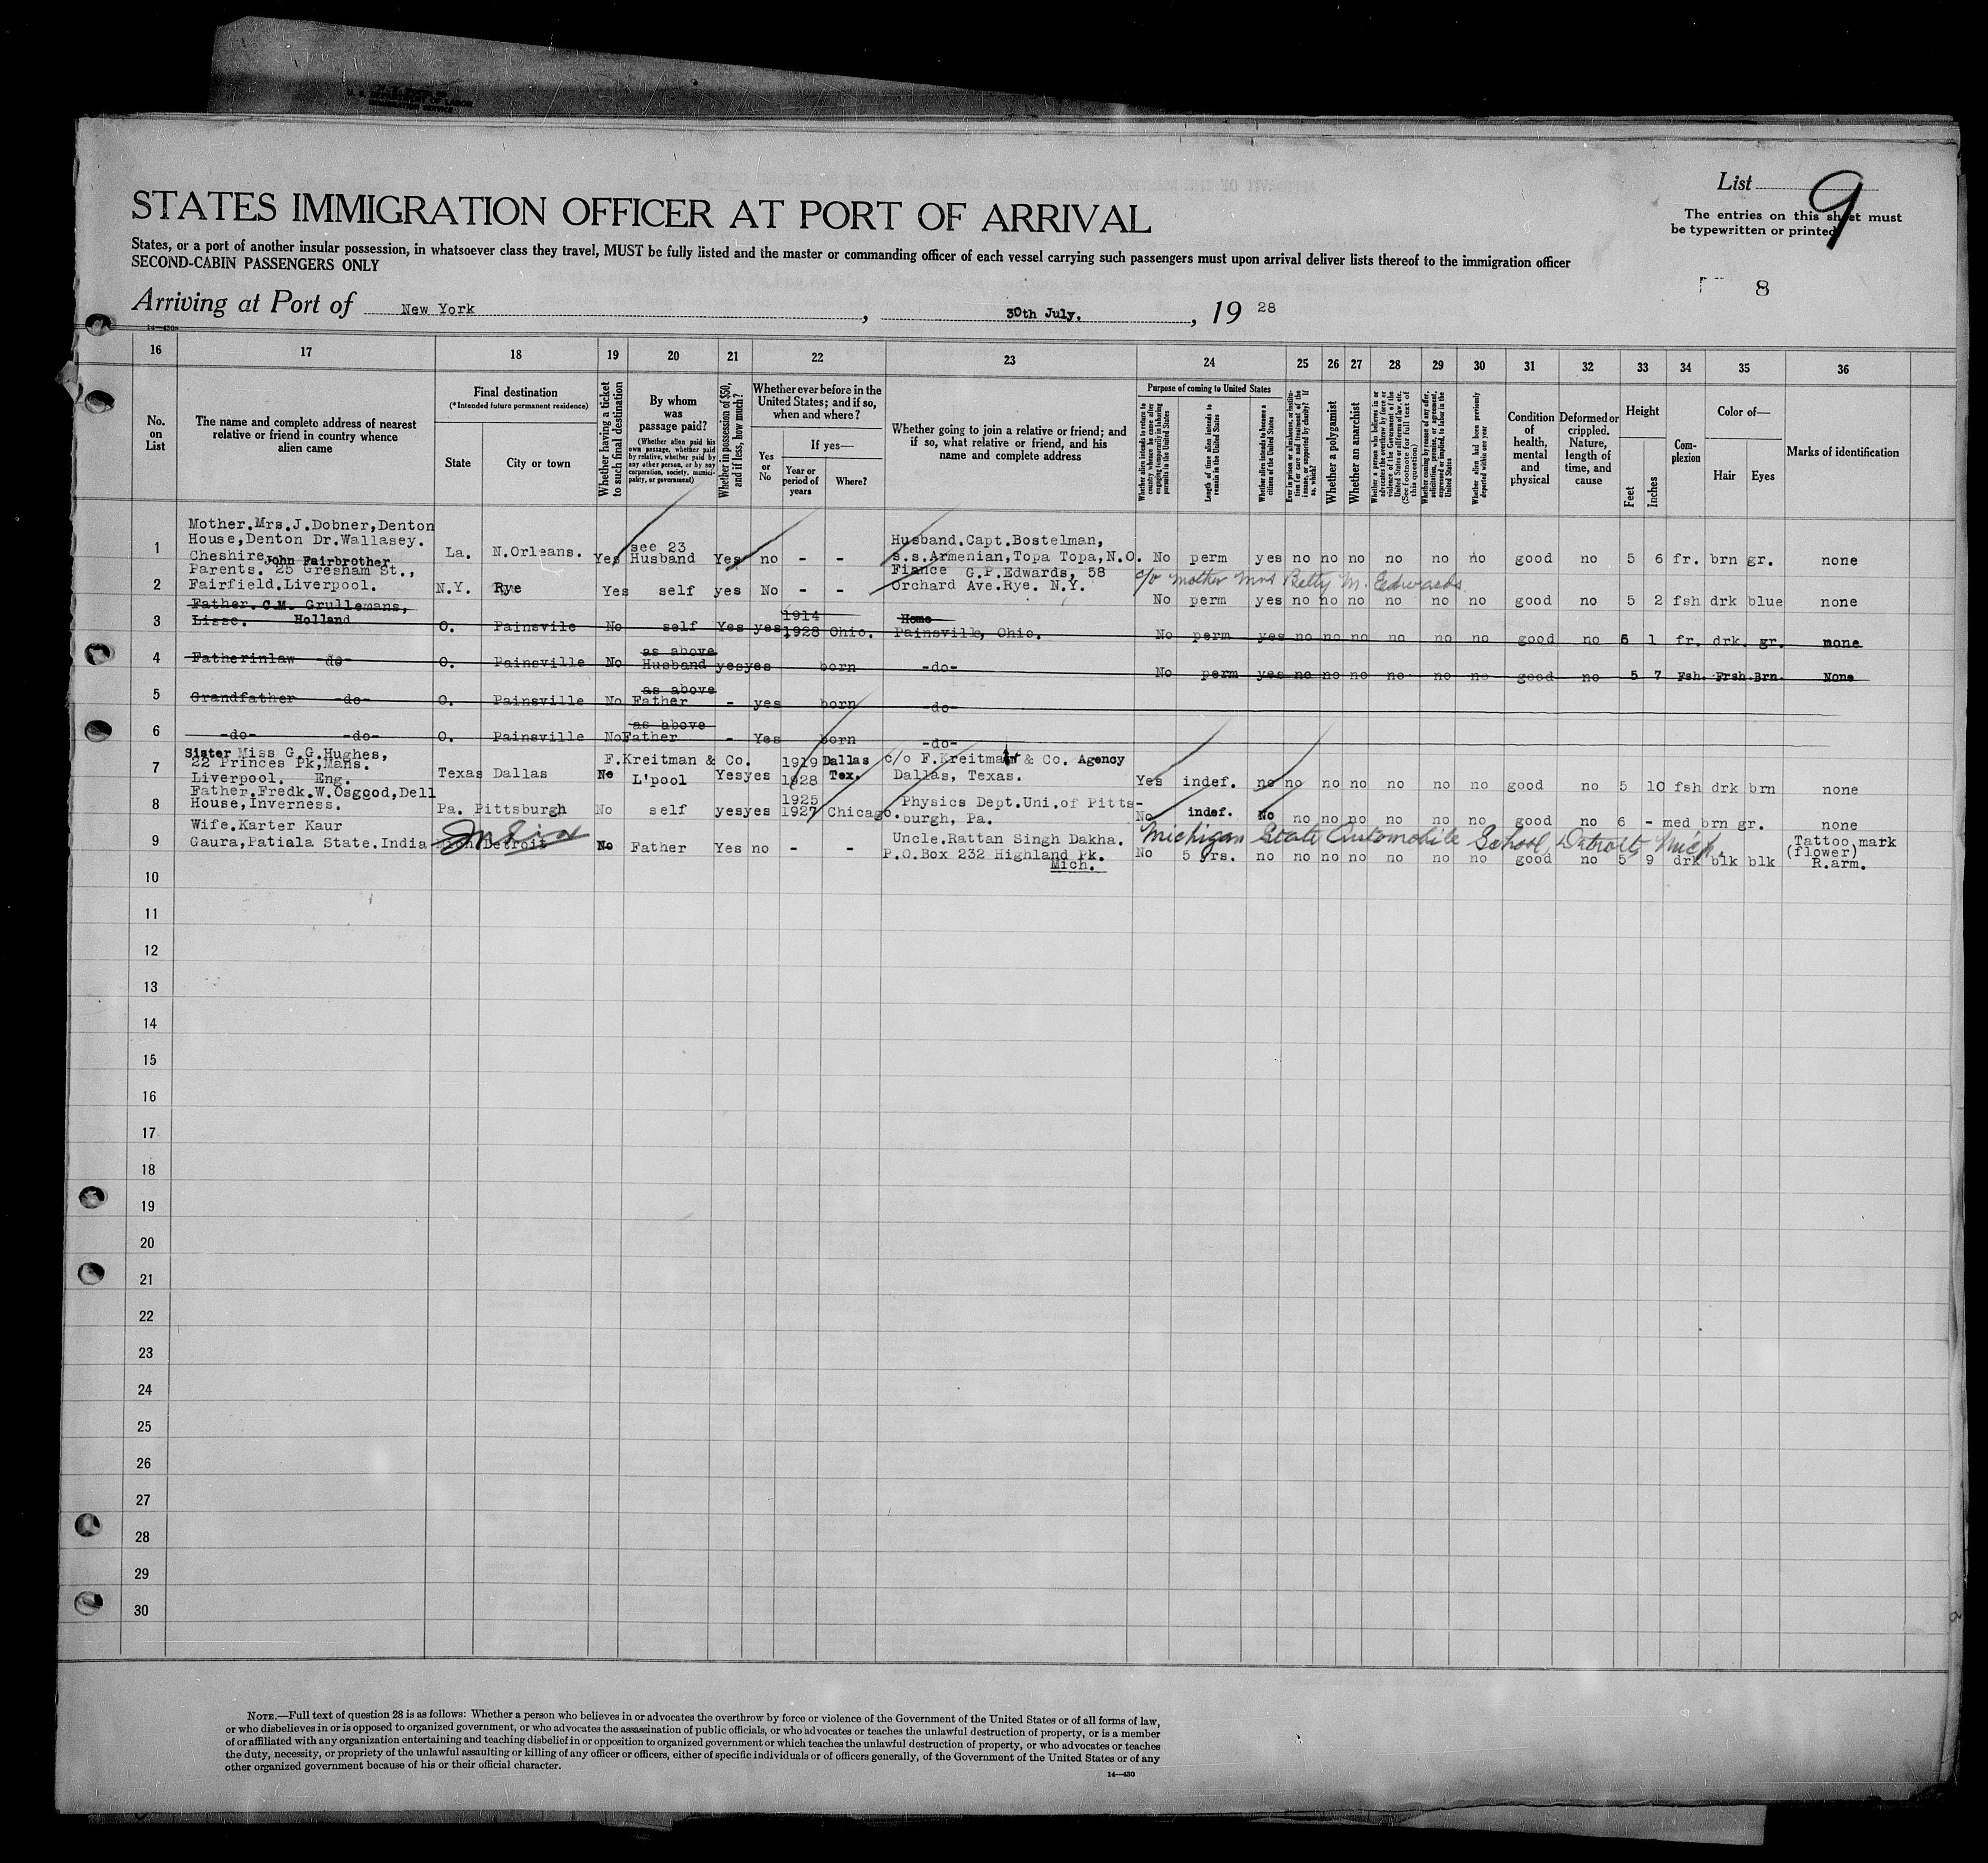 U. S. DEPARTMENT OF LABOR
IMMIGRATION SERVICE
List 9
STATES IMMIGRATION OFFICER AT PORT OF ARRIVAL
The entries on this sheet must
be typewritten or printed
States, or a port of another insular possession, in whatsoever class they travel, MUST be fully listed and the master or commanding officer of each vessel carrying such passengers must upon arrival deliver lists thereof to the immigration officer
SECOND-CABIN PASSENGERS ONLY
8
Arriving at Port of New York, 30th July, 1928
14—430
16 17 18 19 20 21 22 23 24 25 26 27 28 29 30 31 32 33 34 35 36
No. on List
The name and complete address of nearest relative or friend in country whence alien came
Final destination
(*Intended future permanent residence)
State
City or town
Whether having a ticket to such final destination
By whom was passage paid?
(Whether alien paid his own passage, whether paid by relative, whether paid by any other person, or by any corporation, society, municipality, or government)
Whether in possession of $50, and if less, how much?
Whether ever before in the United States; and if so, when and where?
Yes or No
If yes—
Year or period of years
Where?
Whether going to join a relative or friend; and if so, what relative or friend, and his name and complete address
Purpose of coming to United States
Whether alien intends to return to country whence he came after engaging temporarily in laboring pursuits in the United States
Length of time alien intends to remain in the United States
Whether alien intends to become a citizen of the United States
Ever in prison or almshouse, or institution for care and treatment of the insane, or supported by charity? If so, which?
Whether a polygamist
Whether an anarchist
Whether a person who believes in or advocates the overthrow by force or violence of the Government of the United States or all forms of law, etc. (See footnote for full text of this question)
Whether coming by reason of any offer, solicitation, promise, or agreement, expressed or implied, to labor in the United States
Whether alien had been previously deported within one year
Condition of health, mental and physical
Deformed or crippled. Nature, length of time, and cause
Height
Feet
Inches
Complexion
Color of—
Hair
Eyes
Marks of identification
1 Mother.Mrs.J.Dobner,Denton House,Denton Dr.Wallasey. Cheshire La. N.Orleans. Yes see 23 Husband Yes no - - Husband.Capt.Bostelman, s.s.Armenian,Topa Topa,N.O. No perm yes no no no no no no good no 5 6 fr. brn gr. none
2 John Fairbrother Parents. 25 Gresham St., Fairfield.Liverpool. N.Y. Rye Yes self yes No - - Fiance G.P.Edwards, 58 Orchard Ave.Rye. N.Y. c/o mother Mrs Betty M. Edwards No perm yes no no no no no no good no 5 2 fsh drk blue none
3 Father. C.M. Grullemans, Lisse. Holland O. Painsvile No self Yes yes 1914 1928 Ohio. Home Painsville, Ohio. No perm yes no no no no no no good no 5 1 fr. drk. gr. none
4 Fatherinlaw -do- O. Painsville No as above Husband yes yes born -do- No perm yes no no no no no no good no 5 7 Fsh. Frsh Brn. None
5 Grandfather -do- O. Painsville No as above Father - yes born -do-
6 -do- -do- O. Painsville No as above Father - Yes born -do-
7 Sister Miss G.G.Hughes, 22 Princes Pk,Mans. Liverpool. Eng. Texas Dallas No F.Kreitman & Co. L'pool Yes yes 1919 1928 Dallas Tex. c/o F.Kreitman & Co. Agency Dallas, Texas. Yes indef. no no no no no no no good no 5 10 fsh drk brn none
8 Father.Fredk.W.Osgood,Dell House,Inverness. Pa. Pittsburgh No self yes yes 1925 1927 Chicago. Physics Dept.Uni.of Pitts- burgh, Pa. No indef. No no no no no no no good no 6 - med brn gr. none
9 Wife.Karter Kaur Gaura,Patiala State.India India Mich Detroit No Father Yes no - - Uncle.Rattan Singh Dakha. P.O.Box 232 Highland Pk. Mich. Michigan State Automobile School, Detroit, Mich. No 5 yrs. no no no no no no no good no 5 9 drk blk blk Tattoo mark (flower) R.arm.
10
11
12
13
14
15
16
17
18
19
20
21
22
23
24
25
26
27
28
29
30
NOTE.—Full text of question 28 is as follows: Whether a person who believes in or advocates the overthrow by force or violence of the Government of the United States or of all forms of law,
or who disbelieves in or is opposed to organized government, or who advocates the assassination of public officials, or who advocates or teaches the unlawful destruction of property, or is a member
of or affiliated with any organization entertaining and teaching disbelief in or opposition to organized government or which teaches the unlawful destruction of property, or who advocates or teaches
the duty, necessity, or propriety of the unlawful assaulting or killing of any officer or officers, either of specific individuals or of officers generally, of the Government of the United States or of any
other organized government because of his or their official character.
14—430